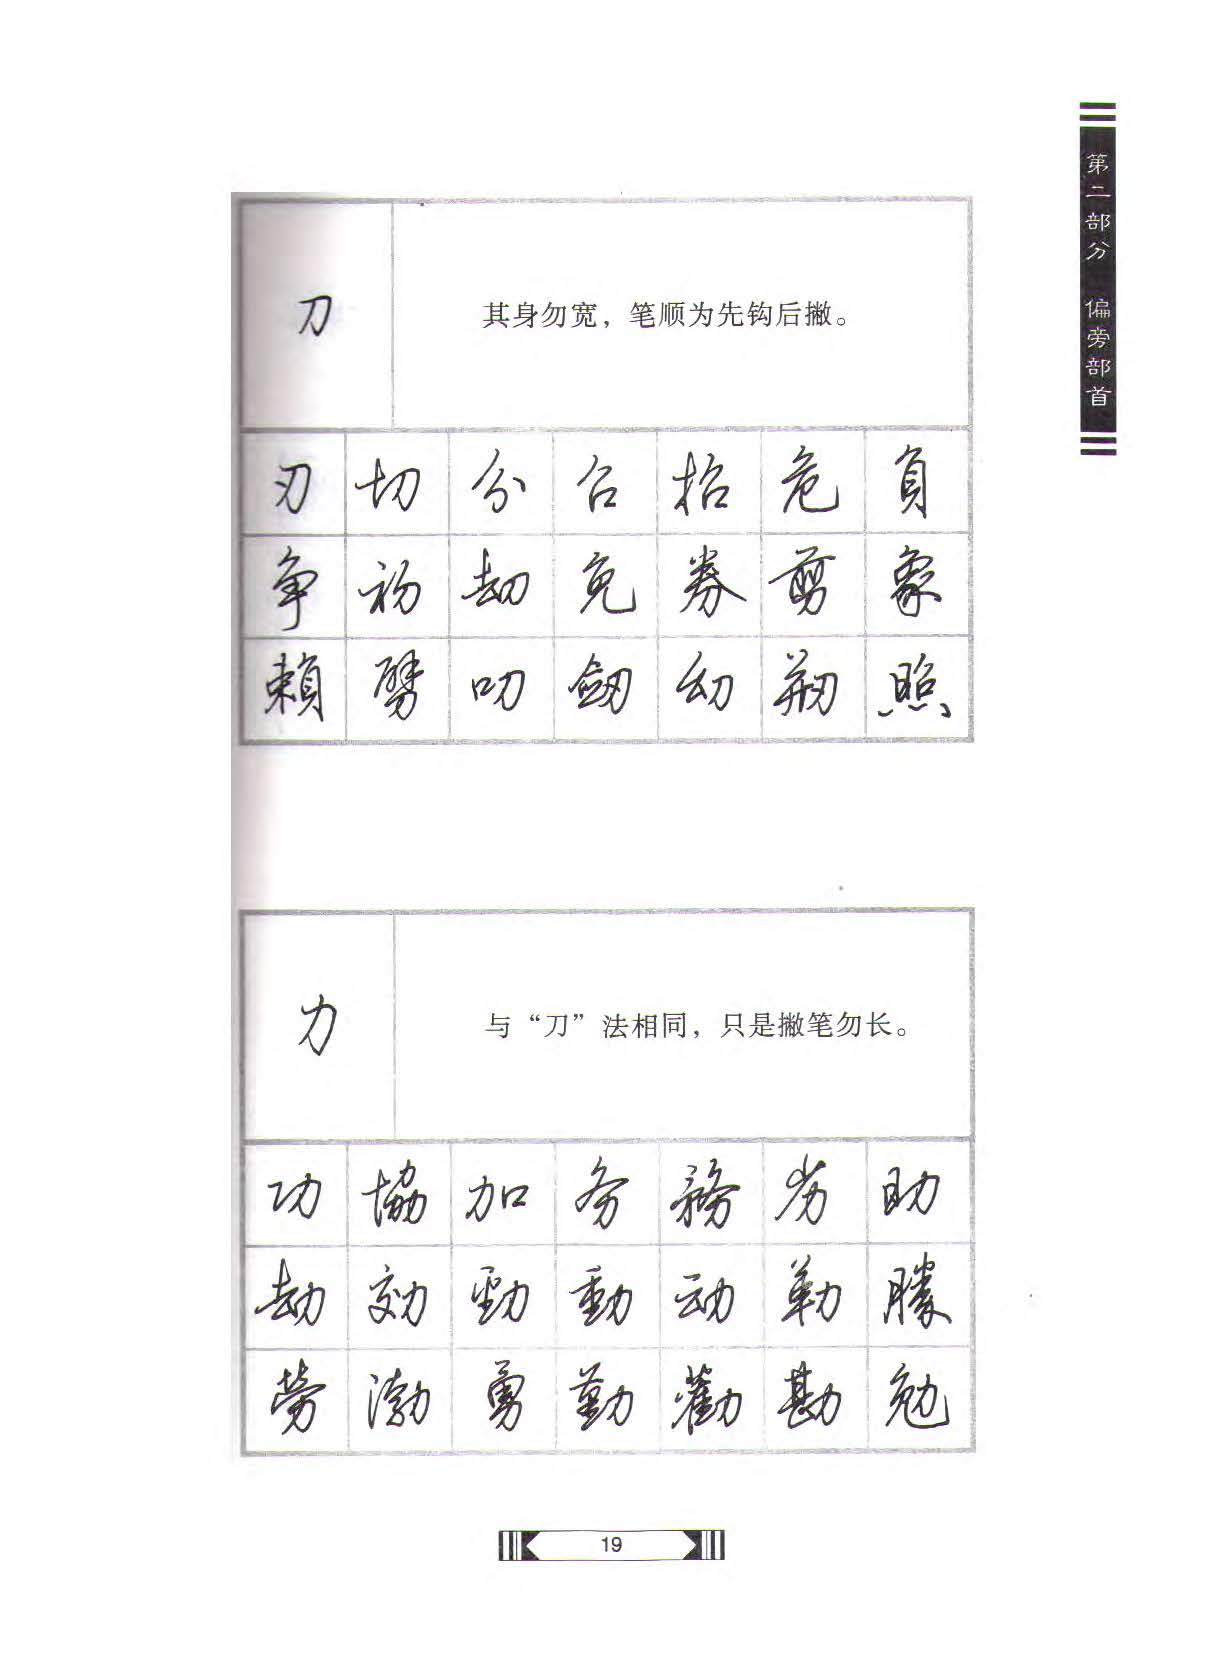 第二部分 偏旁部首
刀
其身勿宽，笔顺为先钩后撇。
刃 切 分 召 招 危 負
争 初 劫 免 券 剪 象
賴 劈 叨 劒 幻 剏 照
力
与“刀”法相同，只是撇笔勿长。
功 協 加 务 務 劣 助
劫 効 勁 動 动 勒 勝
勞 渤 勇 勤 勸 勘 勉
19